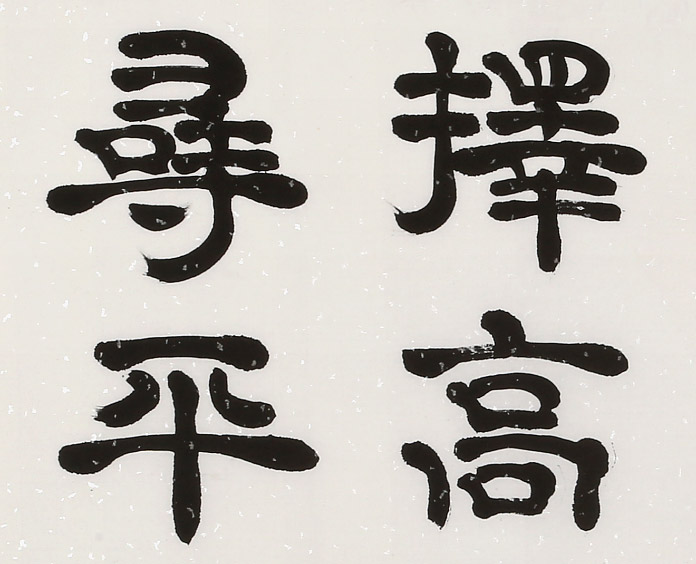 擇高
尋平